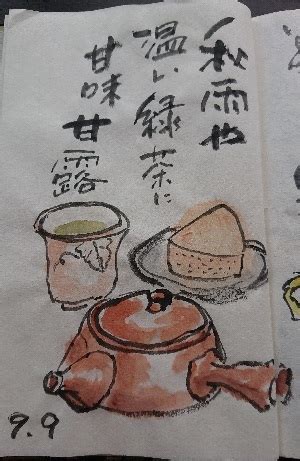 秋雨や
温い緑茶に
甘味甘露
9.9